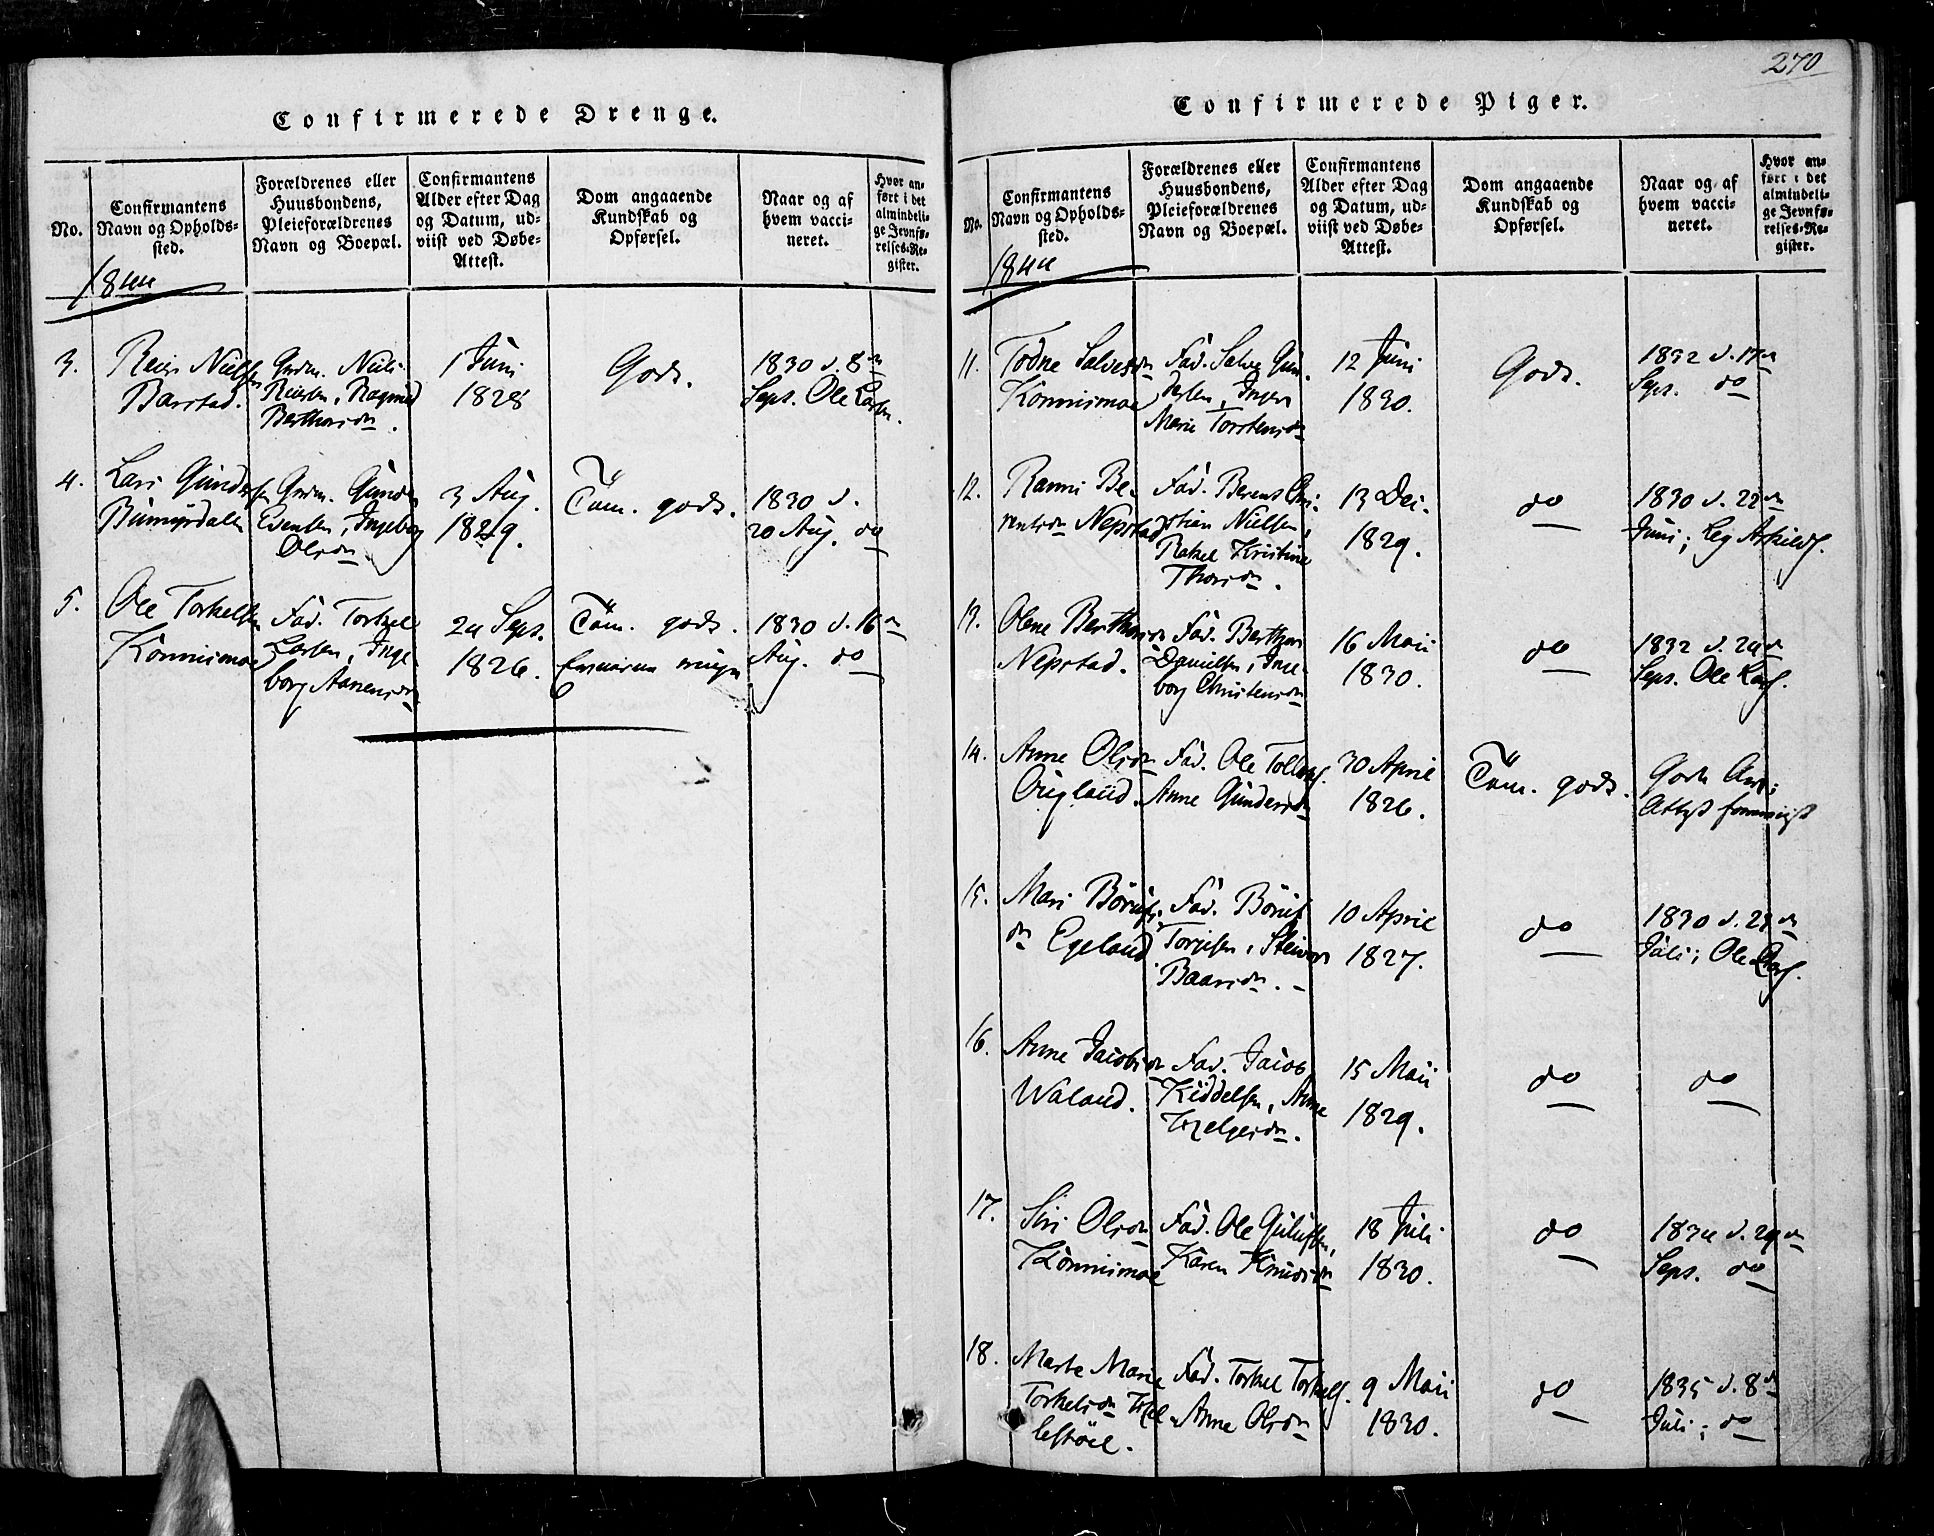 Confirmerede Drenge.
No.
Confirmantens
Navn og Opholds-
sted.
Forældrenes eller
Huusbondens,
Pleieforældrenes
Navn og Boepæl.
Confirmantens
Alder efter Dag
og Datum, ud-
viist ved Døbe-
Attest.
Dom angaaende
Kundskab og
Opførsel.
Naar og af
hvem vacci-
neret.
Hvor an-
ført i det
almindeli-
ge Jevnfø-
relses-Re-
gister.
1844
3.
Reier Nielsen
Barstad.
Niels
Reiersen, Ragnild
Berthorsdn.
1 Juni
1828
Godt.
1830 d. 8dn
Sept. Ole Larsen.
4.
Lars Gunders.
Gunder
Evensen, Ingeborg
Olsdn
3 Aug.
1829.
Tem. godt.
1830 d.
20 Aug. do
5.
Ole Torkelsen
Konnismoe
Fad. Torkel
Larsen, Inge-
borg Aanensdn
24 Sept.
1826.
Tem. godt.
1830 d. 16dn
Aug. do
270
Confirmerede Piger.
No.
Confirmantens
Navn og Opholds-
sted.
Forældrenes eller
Huusbondens,
Pleieforældrenes
Navn og Boepæl.
Confirmantens
Alder efter Dag
og Datum, ud-
viist ved Døbe-
Attest.
Dom angaaende
Kundskab og
Opførsel.
Naar og af
hvem vacci-
neret.
Hvor an-
ført i det
almindeli-
ge Jevnfø-
relses-Re-
gister.
1844
11.
Todne Salvesdn
Konnismoe
Fad. Salve Gun-
dersen, Inger
Marie Torstensdn
12 Juni
1830.
Godt.
1832 d. 17dn
Sept. do
12.
Ranni Be-
rentsdn Nepstad
Fad. Berent Chri-
stian Nielsen,
Rakel Kristine
Thorsdn.
13 Dec.
1829.
do
1830 d. 22dn
Juni;
13.
Olene Berthorsdn
Nepstad.
Fad. Berthor
Danielsen, Inge-
borg Christensdn
16 Maii
1830.
do
1832 d. 24dn
Sept. Ole Lars.
14.
Anne Olsdn
Øugland.
Fad. Ole Tollevs.
Anne Gundersdn
30 April
1826.
Tem. godt.
Attest
15.
Mari Børufs-
dn Egeland
Fad. Børuf
Torjesen,
Baarsdn.
10 April
1827.
do
1830 d. 29dn
Juli; Ole Lars.
16.
Anne Jacobsdn
Waland.
Fad. Jacob
Kiddelsen, Anne
Helgesdn.
15 Maii
1829.
do
do
17.
Siri Olsdn
Konnismoe
Fad. Ole Gulufsen,
Karen Knudsdn
18 Juli
1830.
do
1834 d. 29dn
Sept. do
18.
Marte Marie
Torkelsdn Hel-
lestöel.
Fad. Torkel Torkels.
Anne Olsdn
9 Maii
1830.
do
1835 d. 8dn
Juli; do